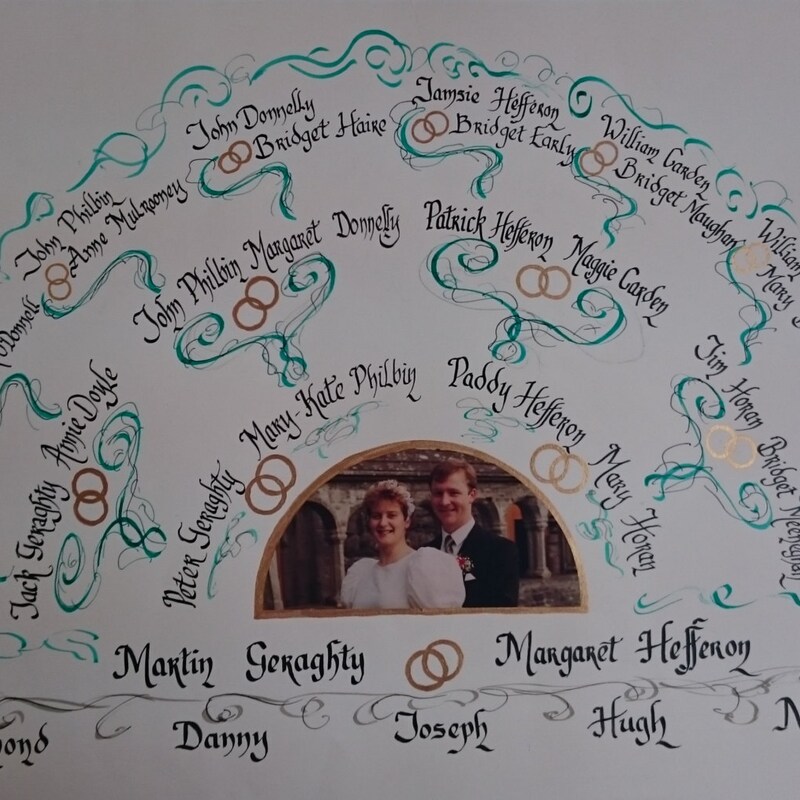 John Donnelly
Bridget Haire
Jamsie Hefferon
Bridget Early
William Garden
Bridget Maughan
William
Mary
John Philbin
Anne Mulrooney
O'Donnell
John Philbin
Margaret Donnelly
Patrick Hefferon
Maggie Garden
Jack Geraghty
Annie Doyle
Peter Geraghty
Mary-Kate Philbin
Paddy Hefferon
Mary Horan
Jim Horan
Bridget Meenaghan
Martin Geraghty
Margaret Hefferon
Danny
Joseph
Hugh